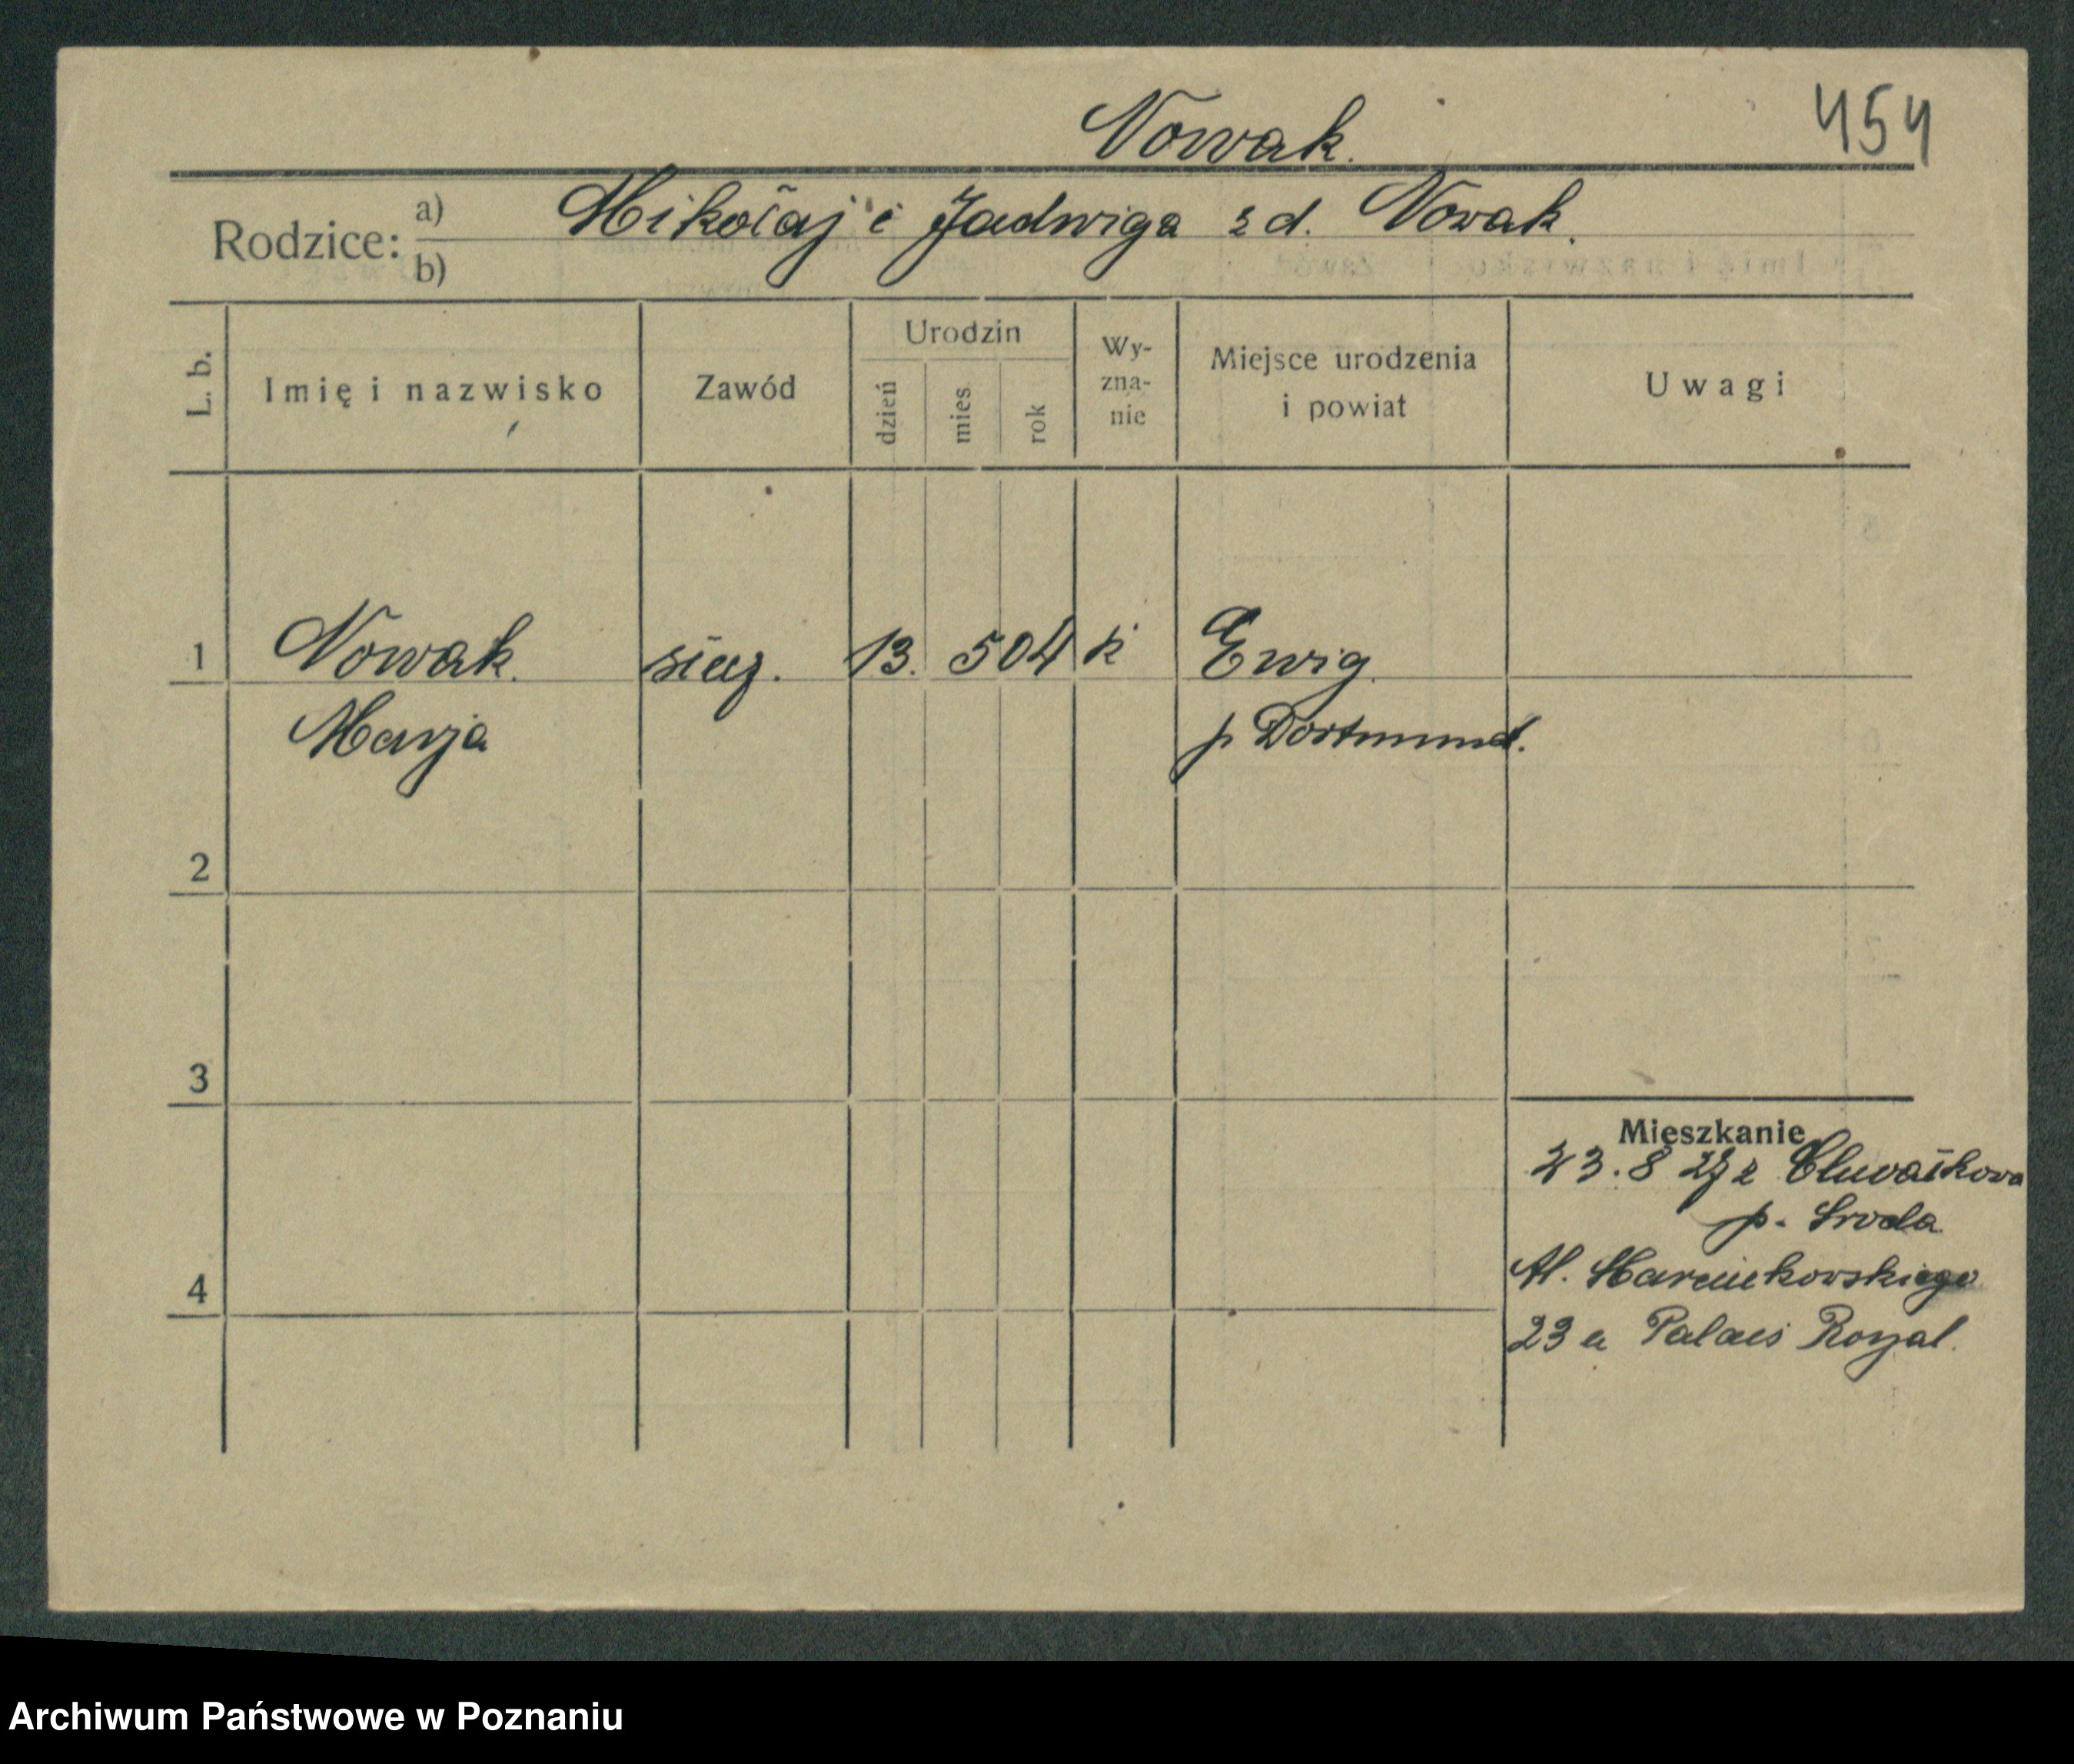 Nowak.
454
Rodzice: a) Mikołaj i Jadwiga z d. Nowak.
b)
L. b.
Imię i nazwisko
Zawód
Urodzin
dzień
mies
rok
Wy-
zna-
nie
Miejsce urodzenia
i powiat
Uwagi
1 Nowak. służ. 13. 5 04 k Ewig.
Marja p Dortmund.
2
3
4
Mieszkanie
23. 8 27 z
p. Sroda
Al. Marcinkowskiego
23 a Palais Royal.
Archiwum Państwowe w Poznaniu